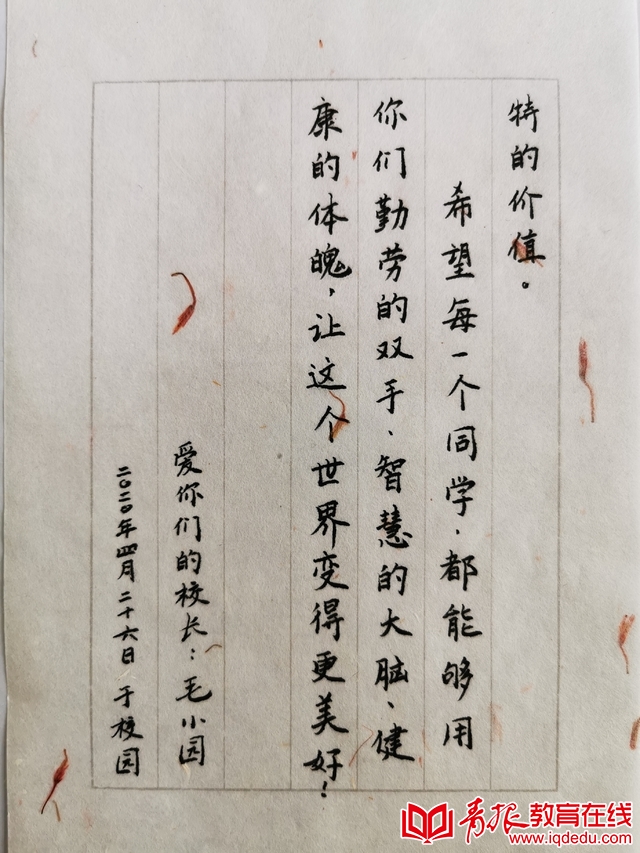 特的价值。
希望每一个同学、都能够用
你们勤劳的双手、智慧的大脑、健
康的体魄，让这个世界变得更美好！
爱你们的校长：毛小园
二〇二〇年四月二十六日 于校园
青报教育在线
www.iqdedu.com